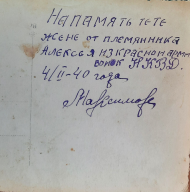 НА ПАМЯТЬ ТЕТЕ
ЖЕНЕ ОТ ПЛЕМЯННИКА
АЛЕКСЕЯ ИЗ КРАСНОЙ АРМИ
ВОЙСК Н.К.В.Д.
4/II-40 года